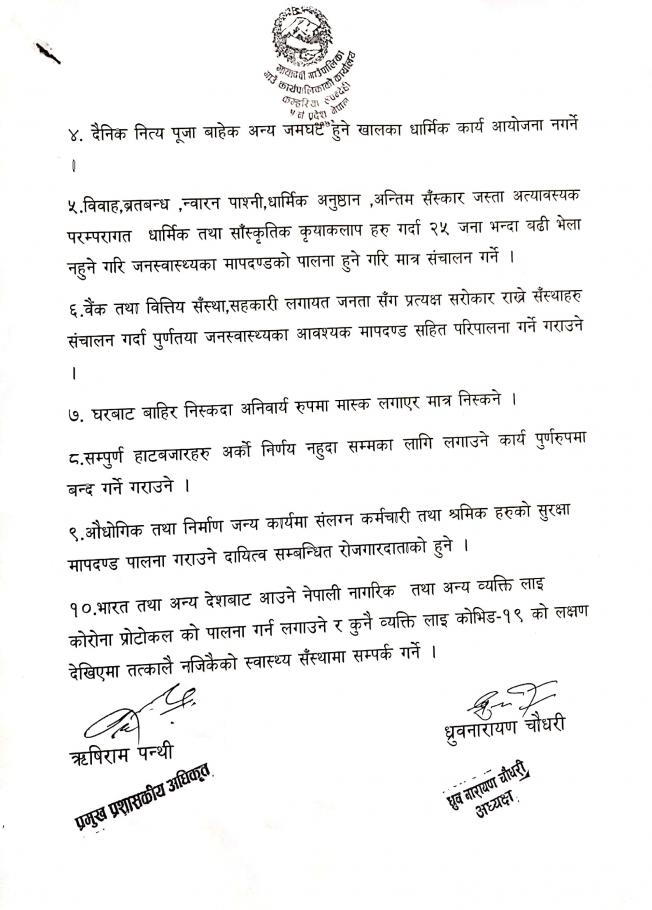 मायादेवी गाउँपालिका
गाउँ कार्यपालिकाको कार्यालय
कम्हरिया रुपन्देही
५ नं प्रदेश नेपाल
४. दैनिक नित्य पूजा बाहेक अन्य जमघट हुने खालका धार्मिक कार्य आयोजना नगर्ने
।
५.विवाह,ब्रतबन्ध ,न्वारन पाश्नी,धार्मिक अनुष्ठान ,अन्तिम सँस्कार जस्ता अत्यावस्यक
परम्परागत धार्मिक तथा साँस्कृतिक कृयाकलाप हरु गर्दा २५ जना भन्दा बढी भेला
नहुने गरि जनस्वास्थ्यका मापदण्डको पालना हुने गरि मात्र संचालन गर्ने ।
६.वैंक तथा वित्तिय सँस्था,सहकारी लगायत जनता सँग प्रत्यक्ष सरोकार राख्ने सँस्थाहरु
संचालन गर्दा पुर्णतया जनस्वास्थ्यका आवश्यक मापदण्ड सहित परिपालना गर्ने गराउने
।
७. घरबाट बाहिर निस्कदा अनिवार्य रुपमा मास्क लगाएर मात्र निस्कने ।
८.सम्पुर्ण हाटबजारहरु अर्को निर्णय नहुदा सम्मका लागि लगाउने कार्य पुर्णरुपमा
बन्द गर्ने गराउने ।
९.औधोगिक तथा निर्माण जन्य कार्यमा संलग्न कर्मचारी तथा श्रमिक हरुको सुरक्षा
मापदण्ड पालना गराउने दायित्व सम्बन्धित रोजगारदाताको हुने ।
१०.भारत तथा अन्य देशबाट आउने नेपाली नागरिक तथा अन्य व्यक्ति लाइ
कोरोना प्रोटोकल को पालना गर्न लगाउने र कुनै व्यक्ति लाइ कोभिड-१९ को लक्षण
देखिएमा तत्कालै नजिकैको स्वास्थ्य सँस्थामा सम्पर्क गर्ने ।
ऋषिराम पन्थी
प्रमुख प्रशासकीय अधिकृत
ध्रुवनारायण चौधरी
ध्रुव नारायण चौधरी
अध्यक्ष